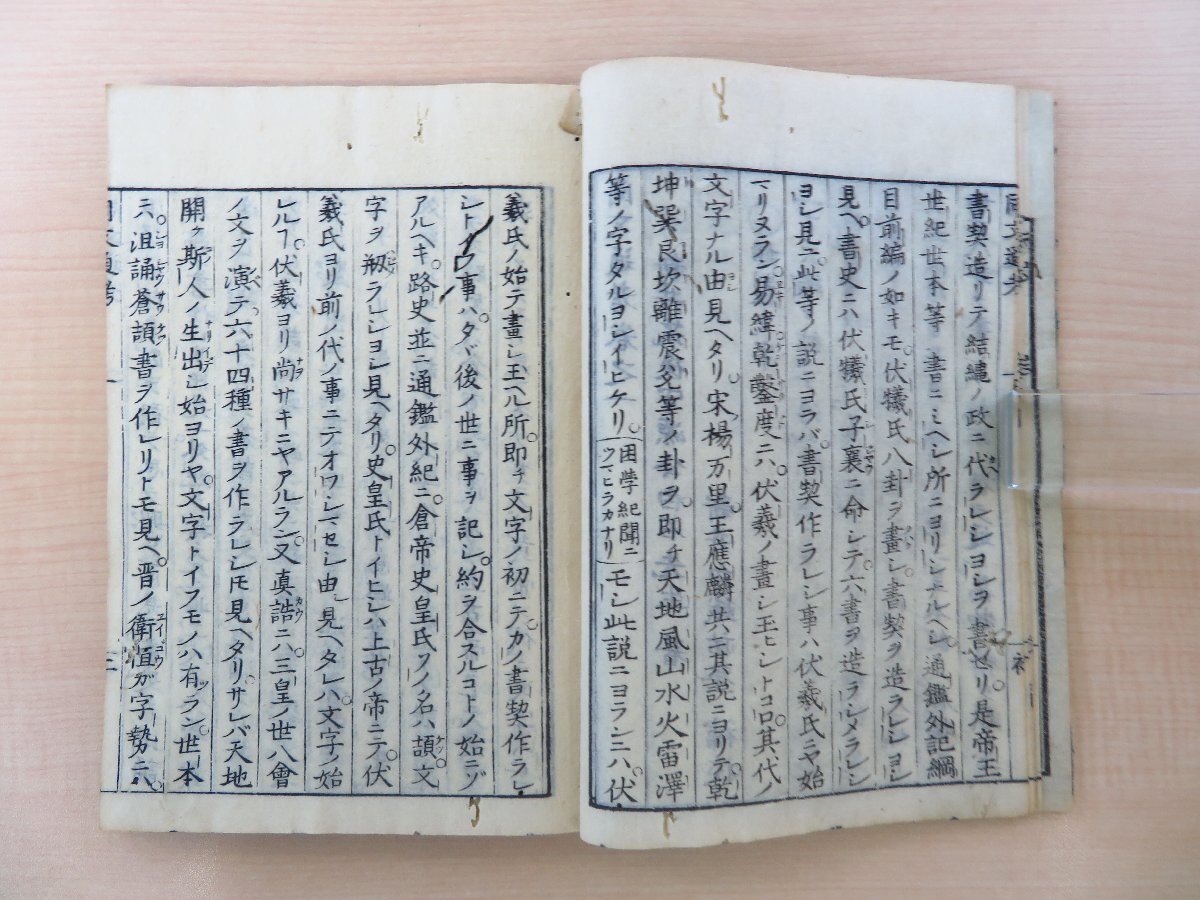 同文通考
書契造リテ結縄ノ政ニ代ラレシヨシヲ書セリ。是帝王
世紀世本等ノ書ニミヘシ所ニヨリシナルヘシ。通鑑外記綱
目前編ノ如キモ。伏犠氏八卦ヲ畫シ。書契ヲ造ラレシヨシ
見ヘ。書史ニハ伏犠氏子襄ニ命シテ。六書ヲ造ラシメラレシ
ヨシ見ユ。此等ノ説ニヨラバ。書契作ラレシ事ハ伏羲氏ニヤ始
マリヌラン。易緯乾鑿度ニハ。伏羲ノ畫シ玉ヒシトコロ。其代ノ
文字ナル由見ヘタリ。宋楊万里。王應麟共ニ其説ニヨリテ。乾
坤巽艮坎離震兌等ノ卦ヲ。即チ天地風山水火雷澤
等ノ字タルヨシイヒケリ。困學紀聞ニツマヒラカナリモシ此説ニヨランニハ。伏
羲氏ノ始テ畫シ玉ヘル所。即チ文字ノ初ニテ。カノ書契作ラレ
シトイフ事ハ。タヾ後ノ世ニ事ヲ記シ。約ヲ合スルコトノ始ニゾ
アルヘキ。路史並ニ通鑑外紀ニ。倉帝史皇氏ノ名ハ頡。文
字ヲ剏ラレシヨシ見ヘタリ。史皇氏トイヒシハ上古ノ帝ニテ。伏
羲氏ヨリ前ノ代ノ事ニテオワシマセシ由見ヘタレハ。文字ノ始
レルフ。伏羲ヨリ尚サキニヤアルラン。又真誥ニハ。三皇ノ世八會
ノ文ヲ演テ。六十四種ノ書ヲ作ラレシモ見ヘタリ。サレバ天地
開ケ斯人ノ生出シ始ヨリヤ。文字トイフモノハ有ツラン。世本
ニ。沮誦蒼頡書ヲ作レリトモ見ヘ。晋ノ衛恒ガ字勢ニハ。
同文通考 一 三